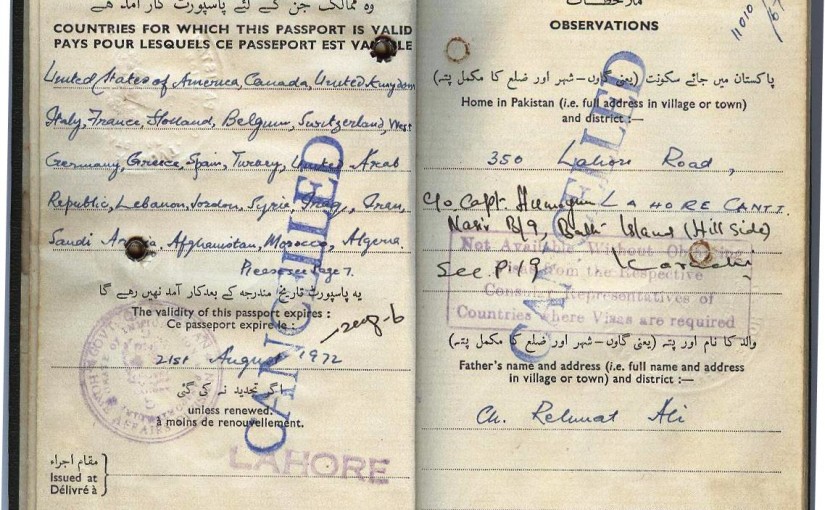 وہ ممالک جن کے لئے پاسپورٹ کار آمد ہے
COUNTRIES FOR WHICH THIS PASSPORT IS VALID
PAYS POUR LESQUELS CE PASSEPORT EST VALABLE
United States of America, Canada, United Kingdom
Italy, France, Holland, Belgium, Switzerland, West
Germany, Greece, Spain, Turkey, United Arab
Republic, Lebanon, Jordon, Syria, Iraq, Iran,
Saudi Arabia, Afghanistan, Morocco, Algeria.
Please see Page 7.
یہ پاسپورٹ تاریخ مندرجہ کے بعد کار آمد نہیں رہے گا
The validity of this passport expires :
Ce passeport expire le :
21st August 1972
اگر تجدید نہ کی گئی
unless renewed.
à moins de renouvellement.
CANCELLED
LAHORE
مقام اجراء
Issued at
Délivré à
ملاحظات
OBSERVATIONS
11010
پاکستان میں جائے سکونت (یعنی گاوں-شہر اور ضلع کا مکمل پتہ)
Home in Pakistan (i.e. full address in village or town)
and district :—
350 Lahore Road,
LAHORE CANTT.
c/o Capt. Humayun
Nasir B/9, Island (Hill Side)
See P/9 Karachi
Not Available Without Obtaining
Visas from the Respective
Consular Representatives of
Countries where Visas are required
CANCELLED
والد کا نام اور پتہ (یعنی گاوں-شہر اور ضلع کا مکمل پتہ)
Father's name and address (i.e. full name and address
in village or town) and district :—
Ch. Rehmat Ali